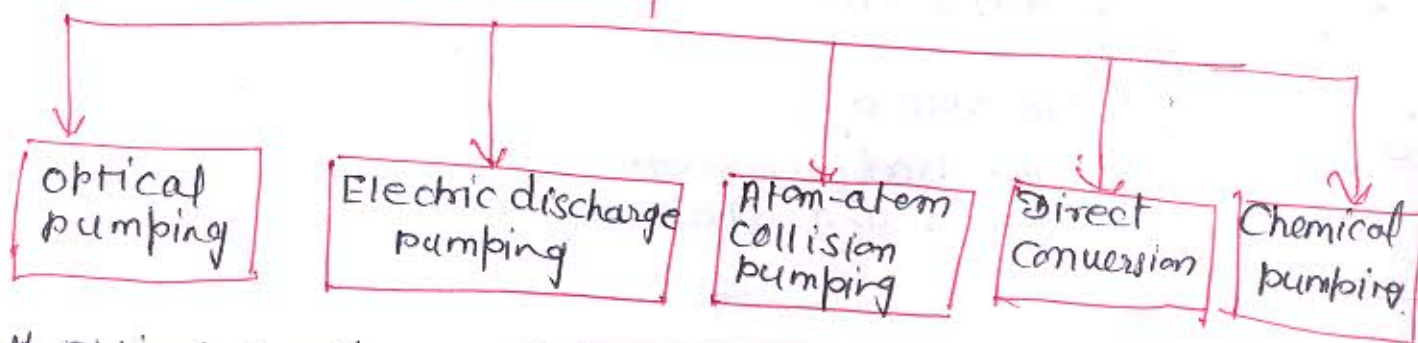 Optical
pumping
Electric discharge
pumping
Atom-atom
Collision
pumping
Direct
Conversion
Chemical
pumping.